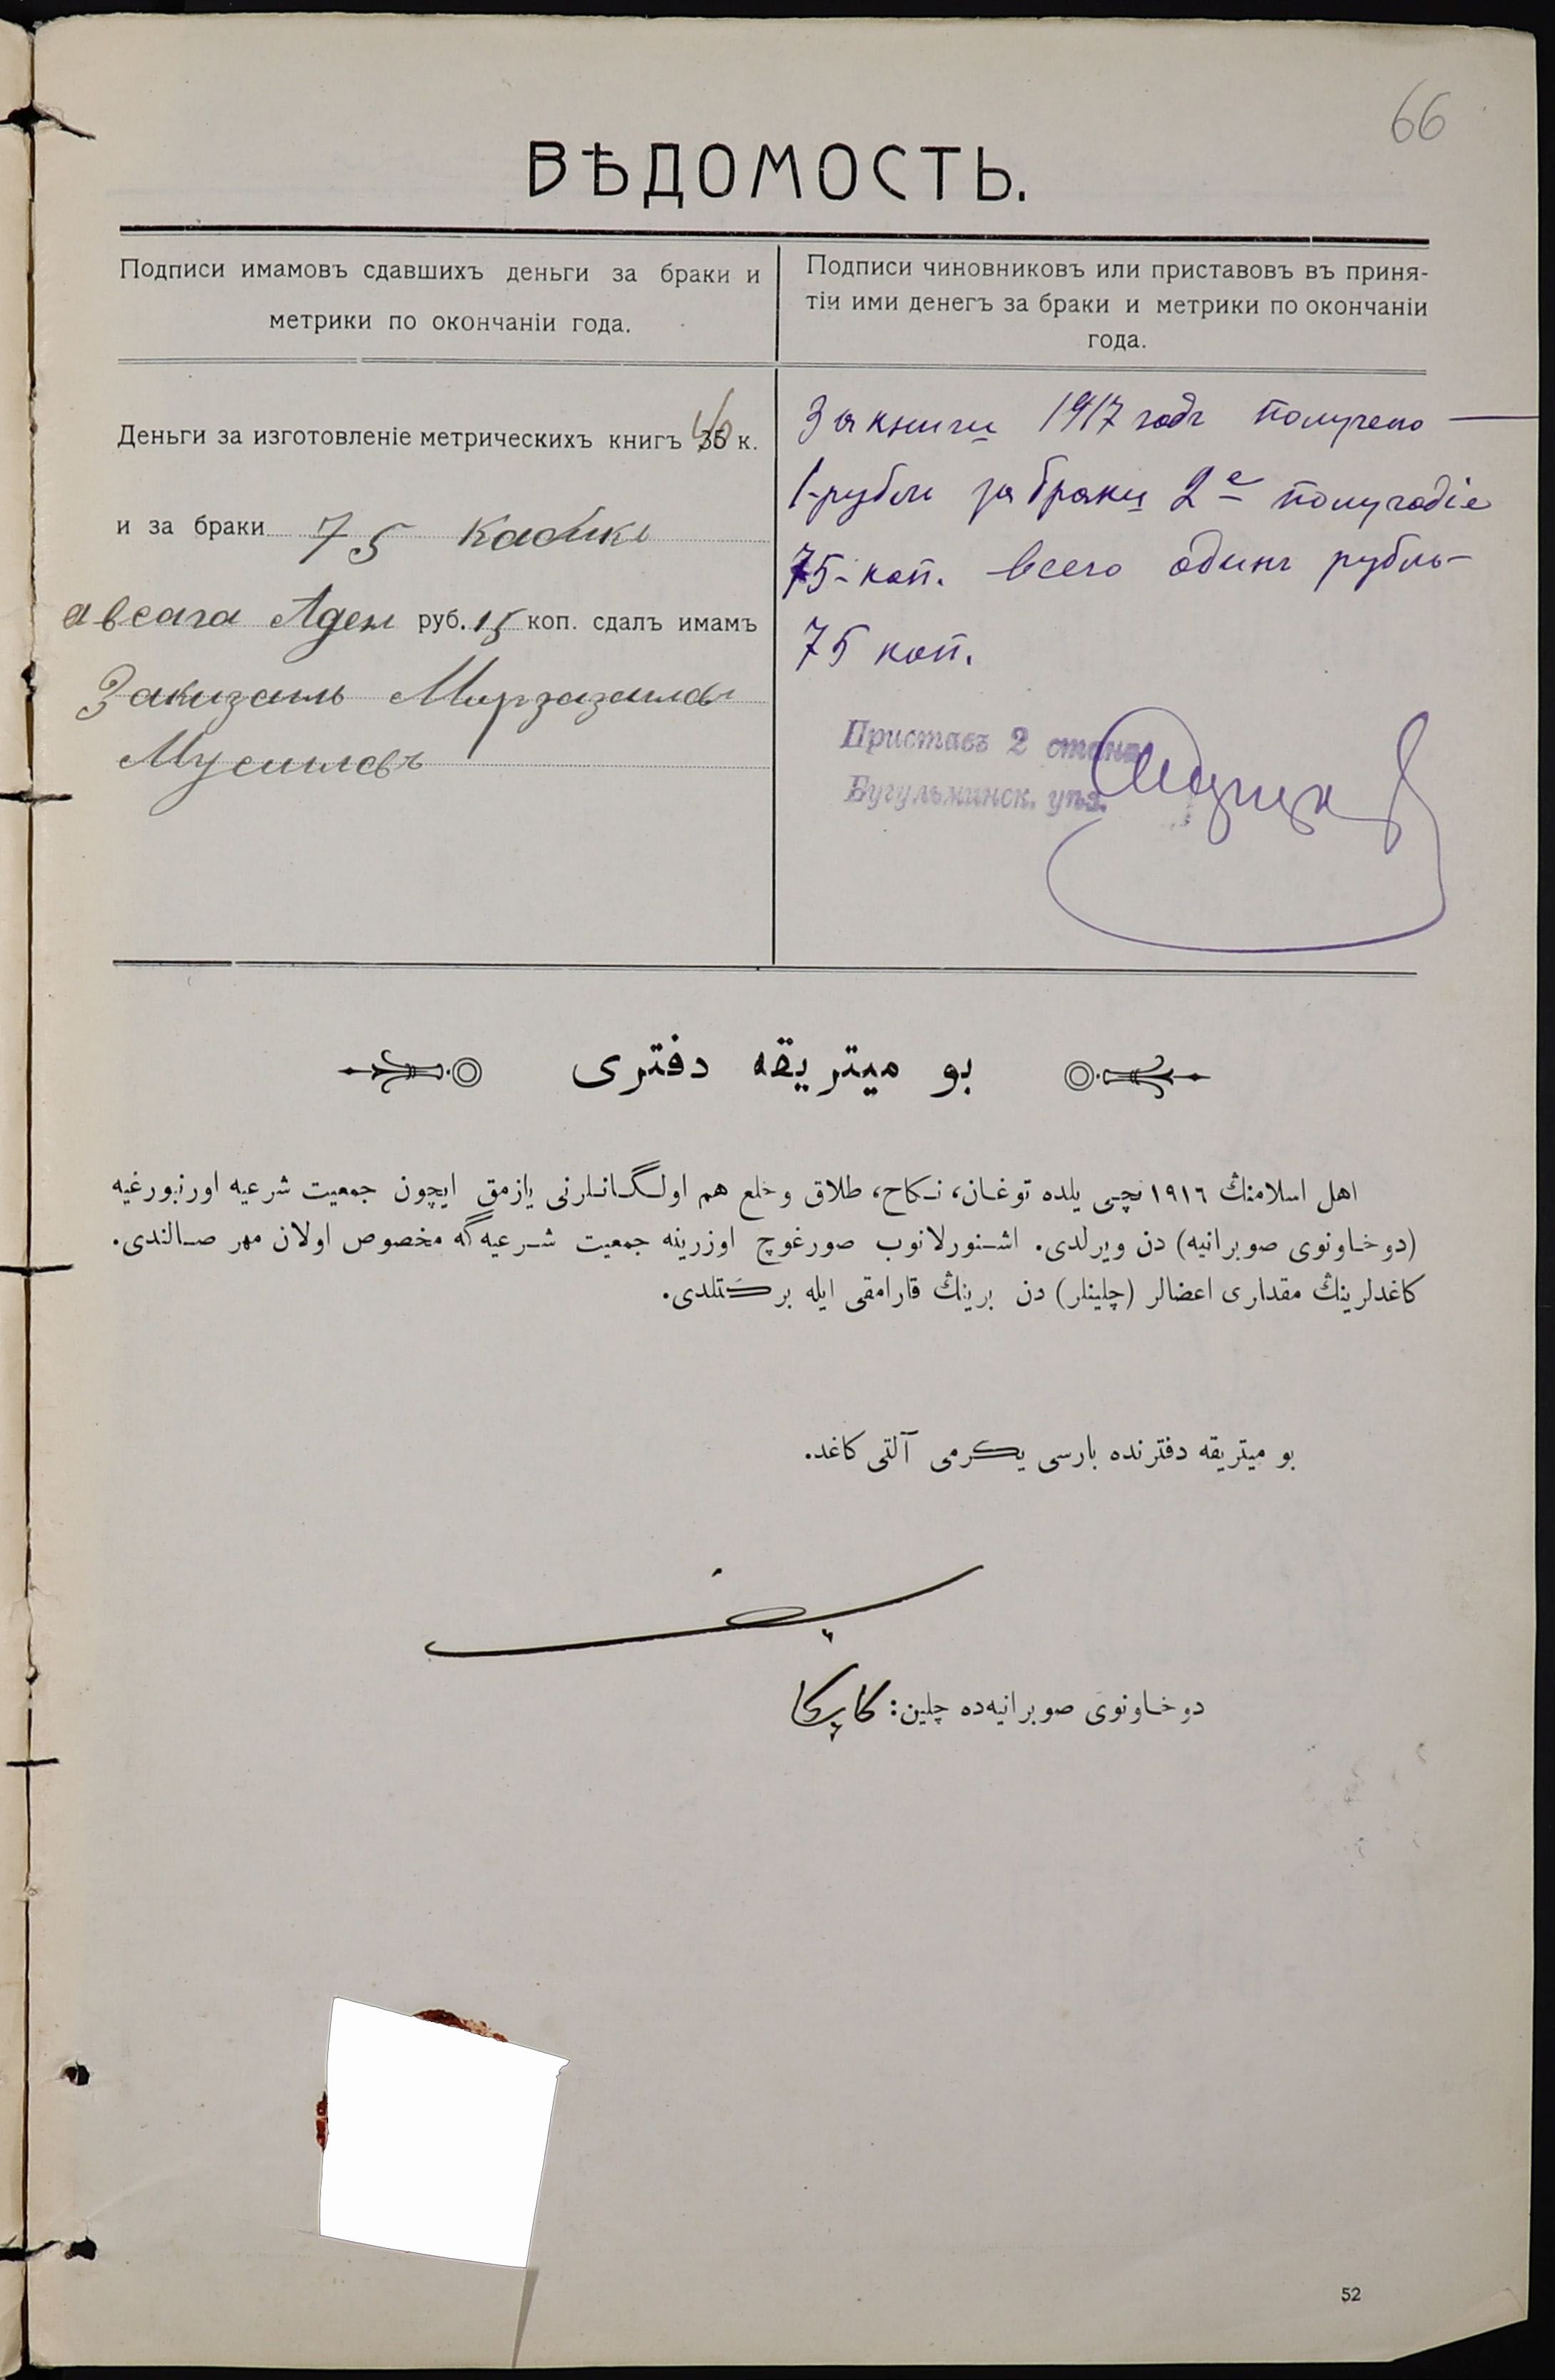 66
ВѢДОМОСТЬ.
Подписи имамовъ сдавшихъ деньги за браки и
метрики по окончаніи года.
Подписи чиновниковъ или приставовъ въ приня-
тіи ими денегъ за браки и метрики по окончаніи
года.
Деньги за изготовленіе метрическихъ книгъ 35 к.
и за браки 75
руб. 15 коп. сдалъ имамъ
За книги 1917 годъ получено —
1-рубли за браки 2е полугодіе
75-коп. всего одинъ рубль-
75 коп.
Приставъ 2 стана
Бугульминск. уѣз.
بو میتریقه دفتری
اهل اسلامنڭ ١٩١٦ نچی یلده توغان، نکاح، طلاق وخلع هم اولگانلرنی یازمق ایچون جمعیت شرعیه اورنبورغیه
(دوخاونوی صوبرانیه) دن ویرلدی. اشنورلانوب صورغوچ اوزرینه جمعیت شرعیه گه مخصوص اولان مهر صالندی.
كاغدلرینڭ مقداری اعضالر (چلینلر) دن برینڭ قارامقی ایله بركتلدی.
بو میتریقه دفترنده بارسی یكرمی آلتی كاغد.
دوخاونوی صوبرانیه‌ده چلین:
52